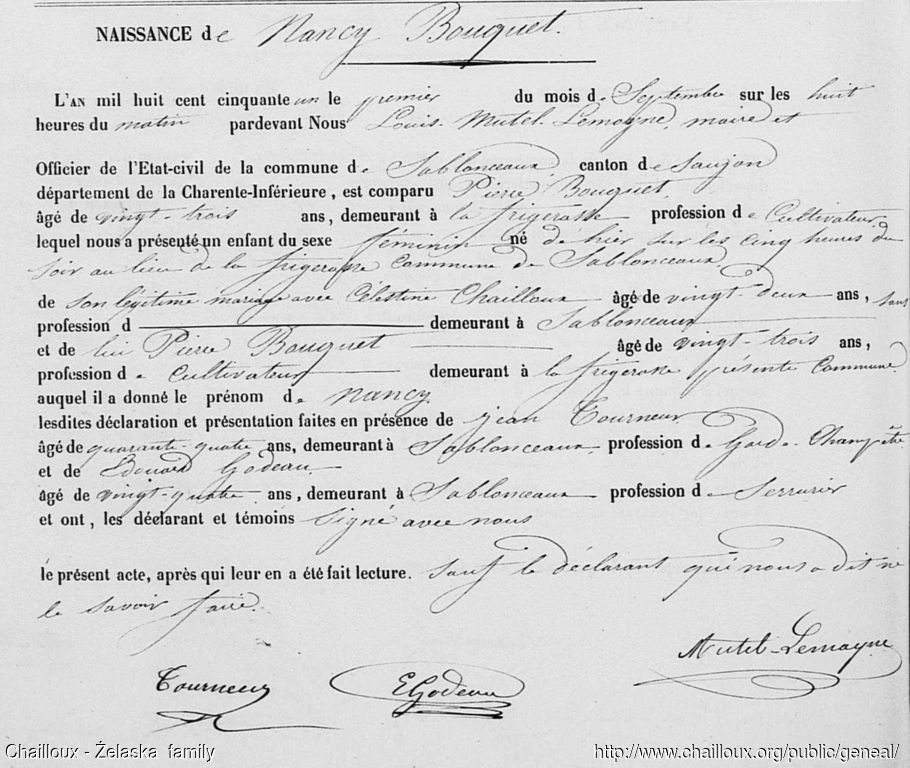 NAISSANCE de Nancy Bouquet.
L'AN mil huit cent cinquante un le premier du mois de Septembre sur les huit
heures du matin pardevant Nous Louis Mutel-Lemoyne, maire et
Officier de l'Etat-civil de la commune de Sablonceaux, canton de Saujon
département de la Charente-Inférieure, est comparu Pierre Bouquet,
âgé de vingt-trois ans, demeurant à la frigerasse profession de Cultivateur,
lequel nous a présenté un enfant du sexe féminin né de hier sur les cinq heures du
soir au lieu de la frigerasse Commune de Sablonceaux,
de son légitime mariage avec Célestine Chailloux âgé de vingt-deux ans, sans
profession d demeurant à Sablonceaux
et de lui Pierre Bouquet âgé de vingt-trois ans,
profession de Cultivateur demeurant à la frigerasse présente Commune
auquel il a donné le prénom de Nancy
lesdites déclaration et présentation faites en présence de jean Tourneur
âgé de quarante-quatre ans, demeurant à Sablonceaux, profession de Garde-Champêtre
et de Edouard Godeau
âgé de vingt-quatre ans, demeurant à Sablonceaux profession de Serrurier
et ont, les déclarant et témoins signé avec nous
le présent acte, après qui leur en a été fait lecture. Sauf le déclarant qui nous a dit ne
le savoir faire.
Mutel-Lemoyne
Tourneur
EGodeau
Chailloux - Želaska family
http://www.chailloux.org/public/geneal/